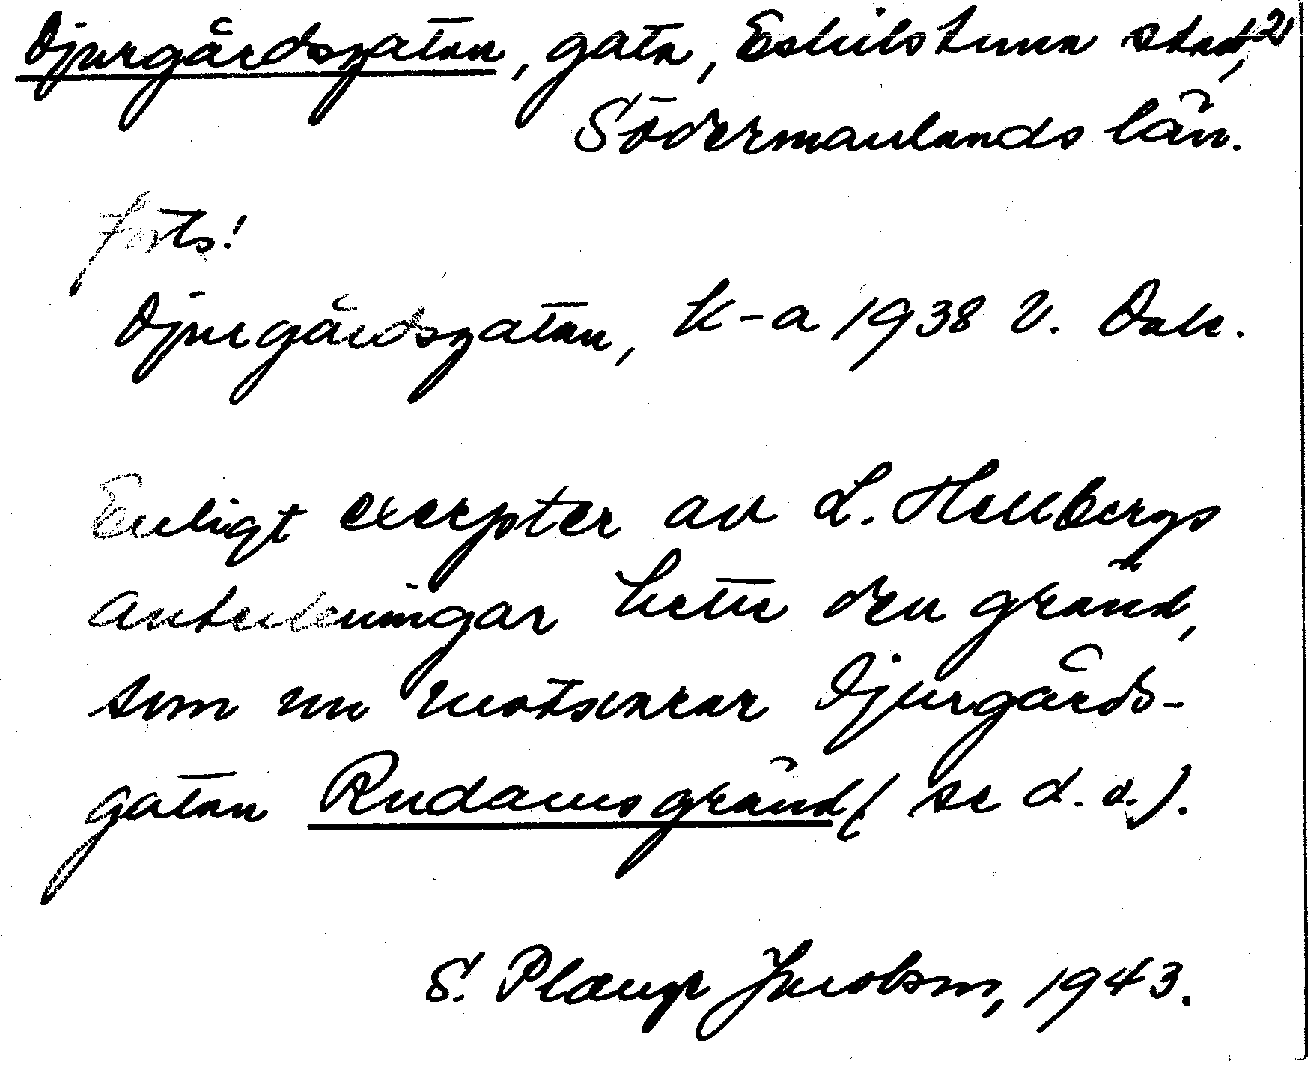 Djurgårdsgatan, gata, Eskilstuna stad, 2)
Södermanlands län.
forts!
Djurgårdsgatan, K-a 1938 V. Dale.
Enligt excerpter av L. Hellbergs
anteckningar hette den gränd,
som nu motsvarar Djurgårds-
gatan Rudamsgränd (se d. o.).
S. Plaenge Jacobson, 1943.